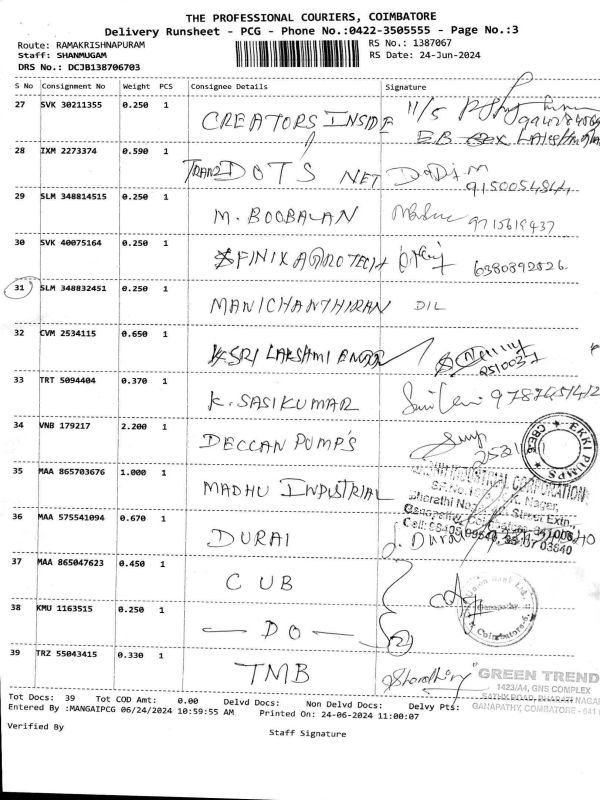 THE PROFESSIONAL COURIERS, COIMBATORE
Delivery Runsheet - PCG - Phone No.:0422-3505555 - Page No.:3
Route: RAMAKRISHNAPURAM RS No.: 1387067
Staff: SHANMUGAM RS Date: 24-Jun-2024
DRS No.: DCJB138706703
S No Consignment No Weight PCS Consignee Details Signature
27 SVK 30211355 0.250 1
CREATORS INSIDE 11/5
28 IXM 2273374 0.590 1
TRANZ DOTS NET
9150054544
29 SLM 348814515 0.250 1
M. BOOBALAN 9715619437
30 SVK 40075164 0.250 1
FINIX AGRO TECH 6380892526
31 SLM 348832451 0.250 1
MANICHANTHIRAN DIL
32 CVM 2534115 0.650 1
SRI LAKSHMI
33 TRT 5094404 0.370 1
K. SASIKUMAR
34 VNB 179217 2.200 1
DECCAN PUMP'S
EKKI PUMPS
CBE-6
35 MAA 865703676 1.000 1
MADHU INDUSTRIAL
CORPORATION
Nagar,
Bharathi Street Extn.,
36 MAA 575541094 0.670 1
DURAI
37 MAA 865047623 0.450 1
CUB
38 KMU 1163515 0.250 1
— DO — (2)
Ganapathy
Coimbatore-6
39 TRZ 55043415 0.330 1
TMB
GREEN TREND
1423/A4, GNS COMPLEX
SATHY ROAD, BHARATI NAGAR
GANAPATHY, COIMBATORE - 641
Tot Docs: 39 Tot COD Amt: 0.00 Delvd Docs: Non Delvd Docs: Delvy Pts:
Entered By :MANGAIPCG 06/24/2024 10:59:55 AM Printed On: 24-06-2024 11:00:07
Verified By
Staff Signature